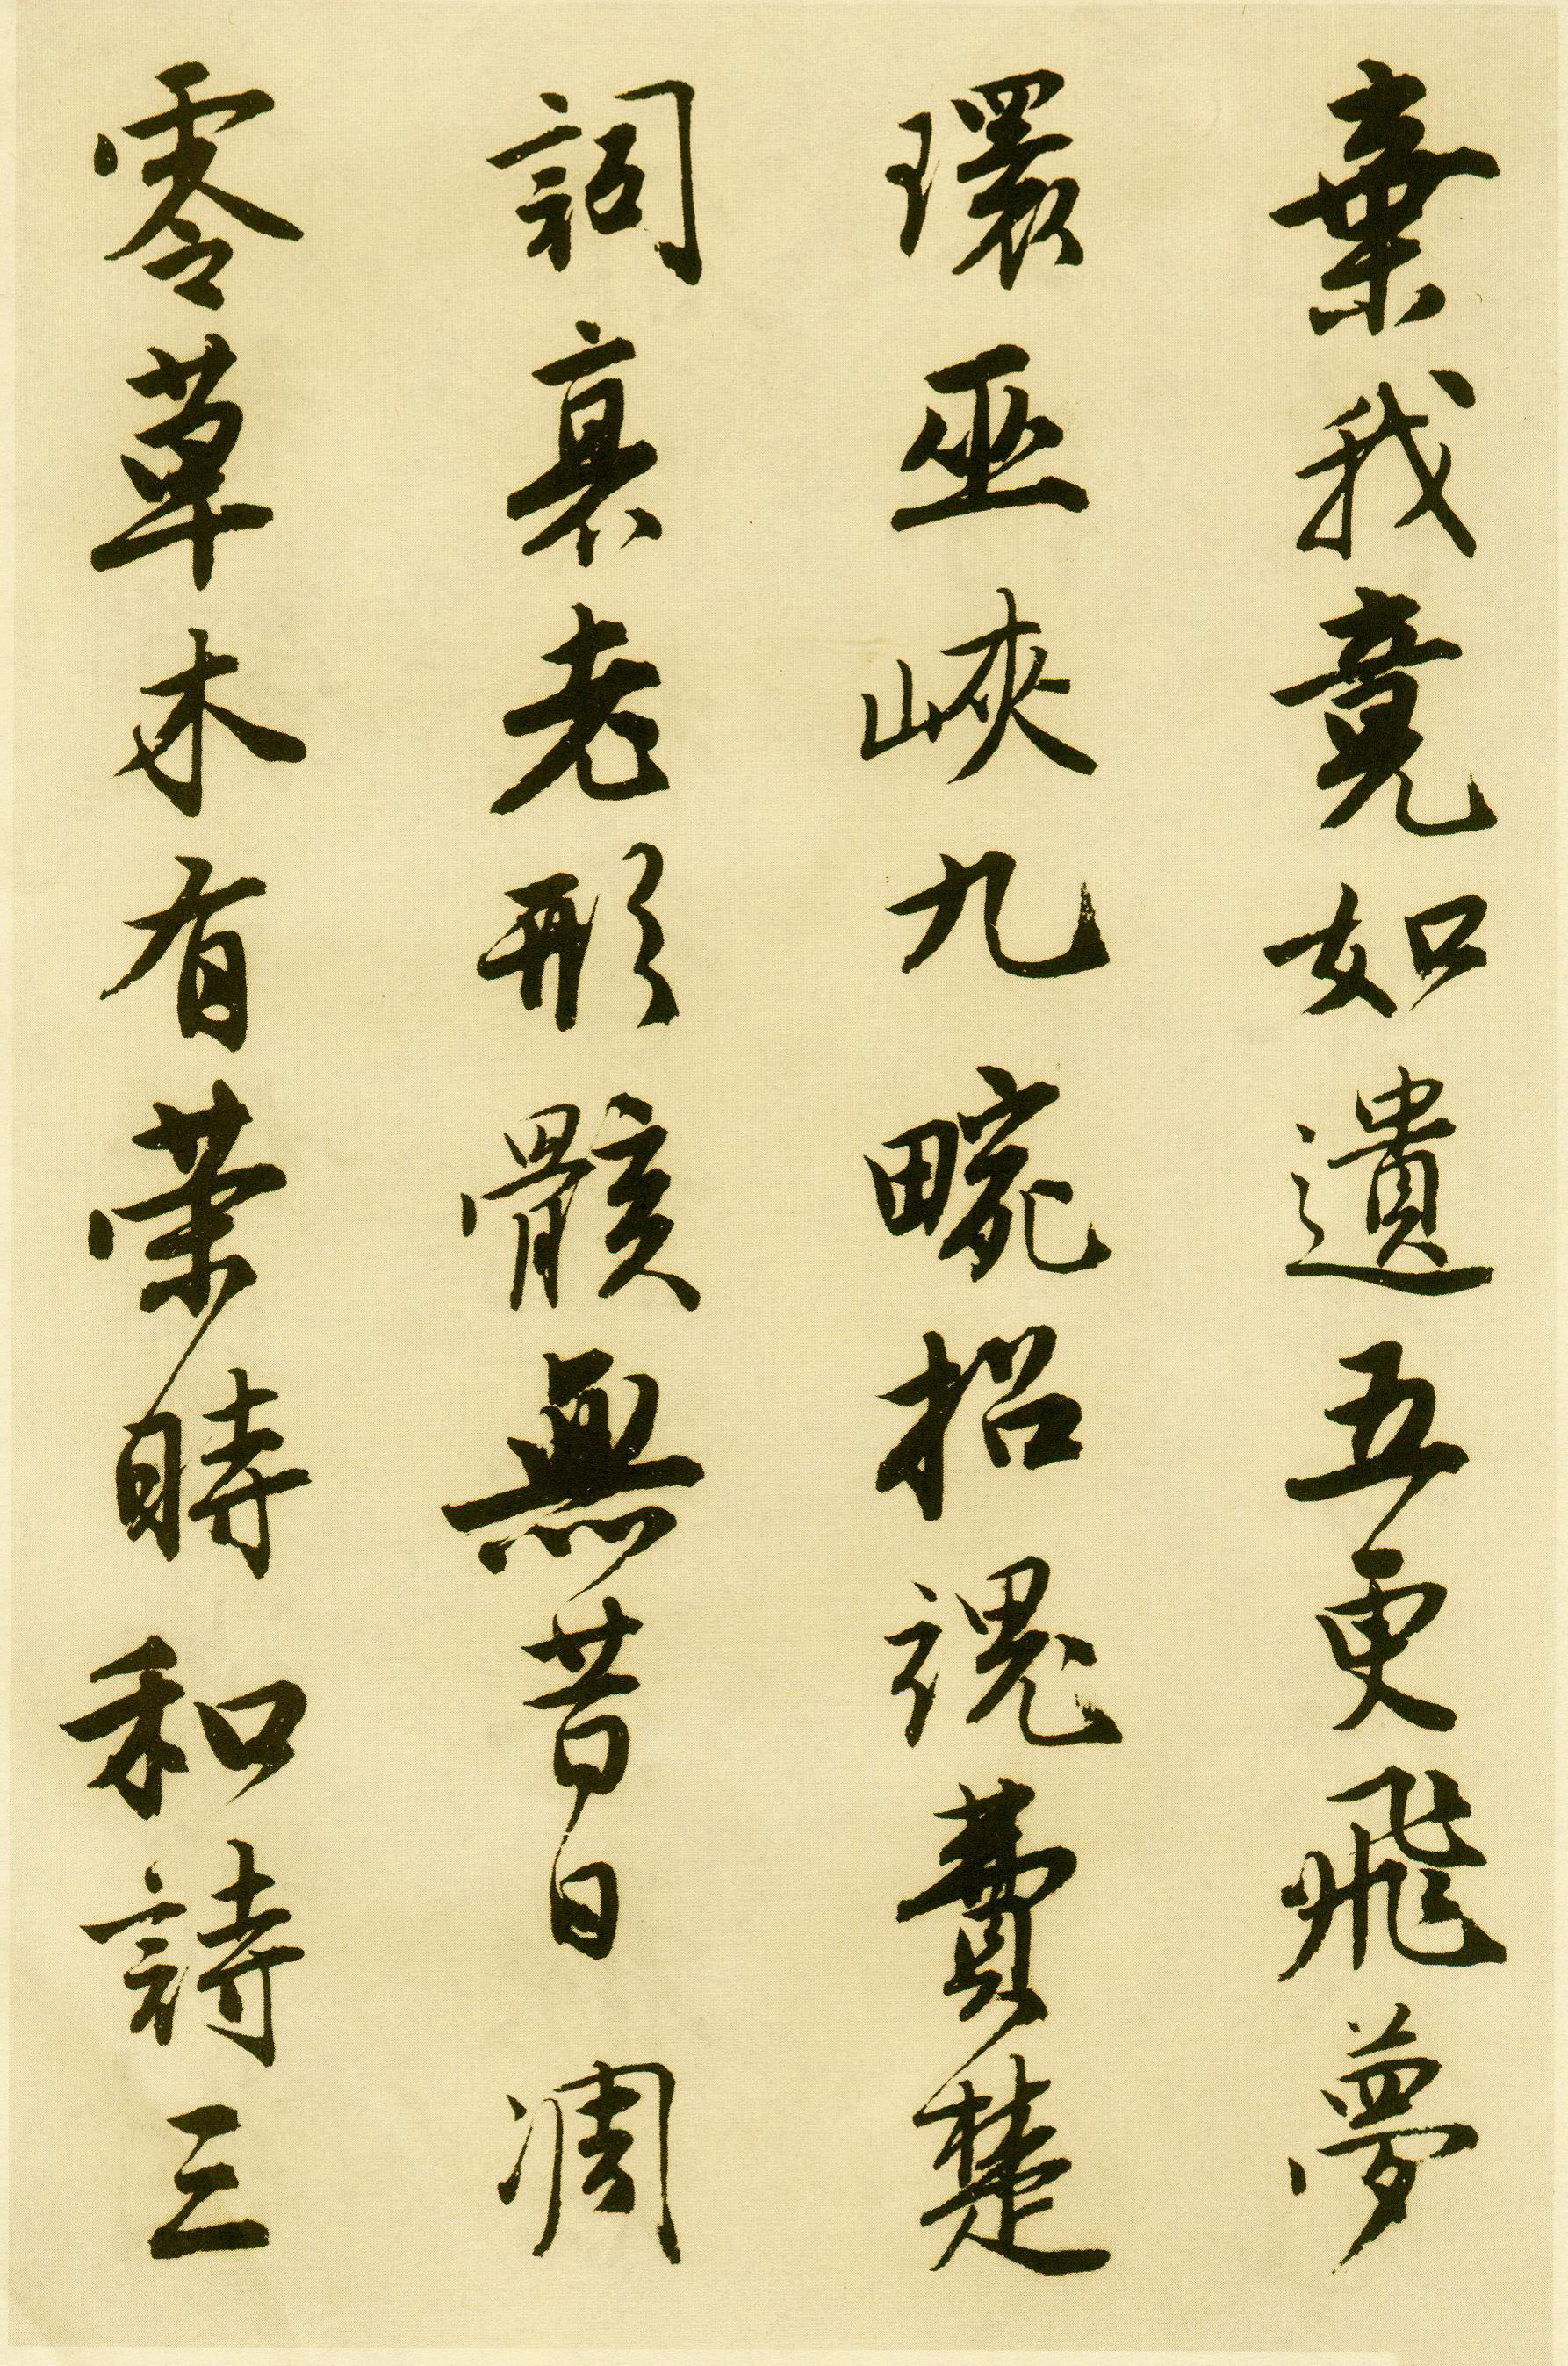 棄我竟如遺五更飛夢
環巫峽九畹招魂費楚
詞衰老形骸無昔日凋
零草木有榮時和詩三